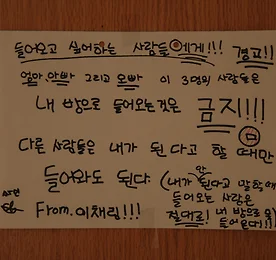 들어오고 싶어하는 사람들에게!!! 경고!!
엄마, 아빠 그리고 오빠 이 3명의 사람들은
내 방으로 들어오는것은 금지!!!!
다른 사람들은 내가 된다고 할 때만
들어와도 된다. (내가 안된다고 말할때
사람은
절대로! 내 방으로
들어온다!!)
From. 이채림!!!